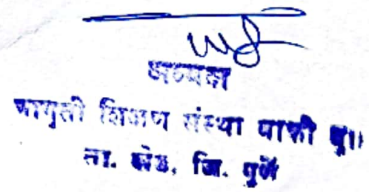 अध्यक्ष
जागृती शिक्षण संस्था पाळी बु॥
ता. खेड, जि. पुणे